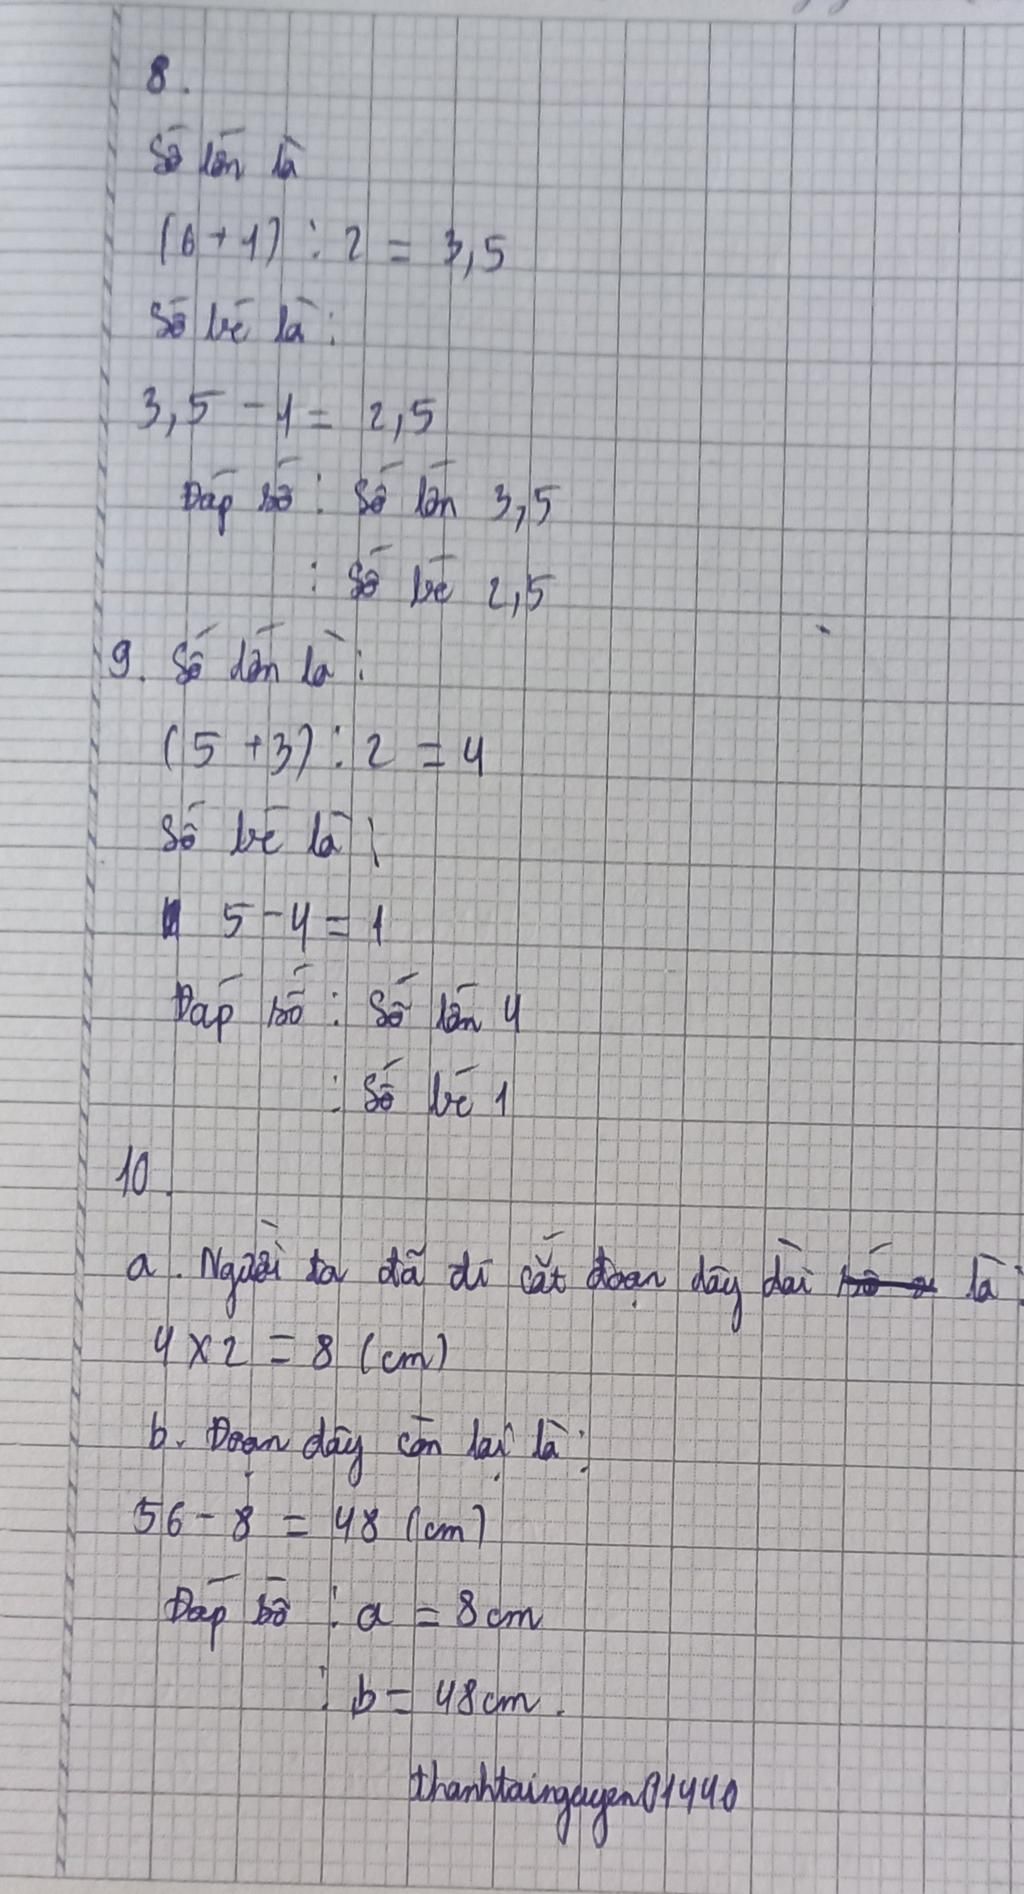 8.
Số lớn là
(6 + 1) : 2 = 3,5
Số bé là :
3,5 - 1 = 2,5
Đáp số : Số lớn 3,5
: Số bé 2,5
9. Số lớn là :
(5 + 3) : 2 = 4
Số bé là :
5 - 4 = 1
Đáp số : Số lớn 4
: Số bé 1
10.
a. Người ta đã đi cắt đoạn dây dài là :
4 x 2 = 8 (cm)
b. Đoạn dây còn lại là :
56 - 8 = 48 (cm)
Đáp số : a = 8cm
: b = 48cm.
thanhtainguyen01440